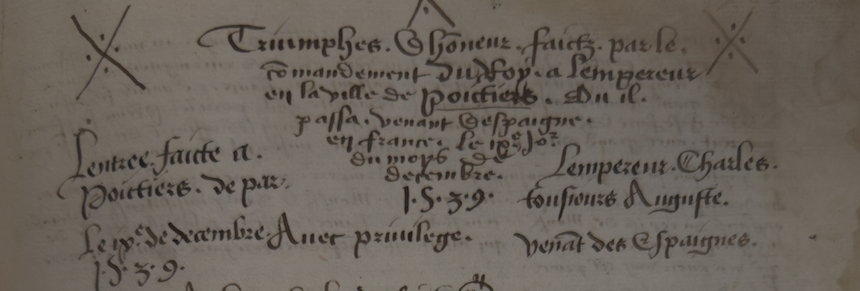 Triumphes. Dhõneur. faictz. par le.
cõmandement du Roy. a Lempereur
en la ville de Poictiers. Ou il.
passa. venant Despaigne.
en france. le ixe Jor
du moys de
decembre.
1.5.39.
Lentree. faicte a.
Poictiers. de par.
Lempereur. Charles.
tousiours Auguste.
Le ixe. de decembre. Avec privilege.
1.5.39.
venãt des Espaignes.